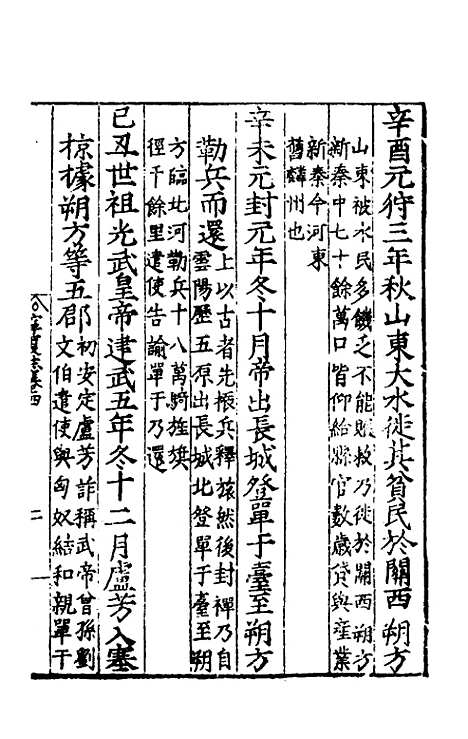 辛酉元狩三年秋山東大水徙其貧民於關西朔方
山東被水民多饑乏不能賑救乃徙於關西朔方
新秦中七十餘萬口皆仰給縣官數歲貸與產業
新秦今河東
舊麟州也
辛未元封元年冬十月帝出長城登單于臺至朔方
勒兵而還
上以古者先振兵釋旅然後封禪乃自
雲陽歷五原出長城北登單于臺至朔
方臨北河勒兵十八萬騎旌旗
徑千餘里遣使告諭單于乃還
己丑世祖光武皇帝建武五年冬十二月盧芳入塞
掠據朔方等五郡
初安定盧芳詐稱武帝曾孫劉
文伯遣使與匈奴結和親單于
卷四
二